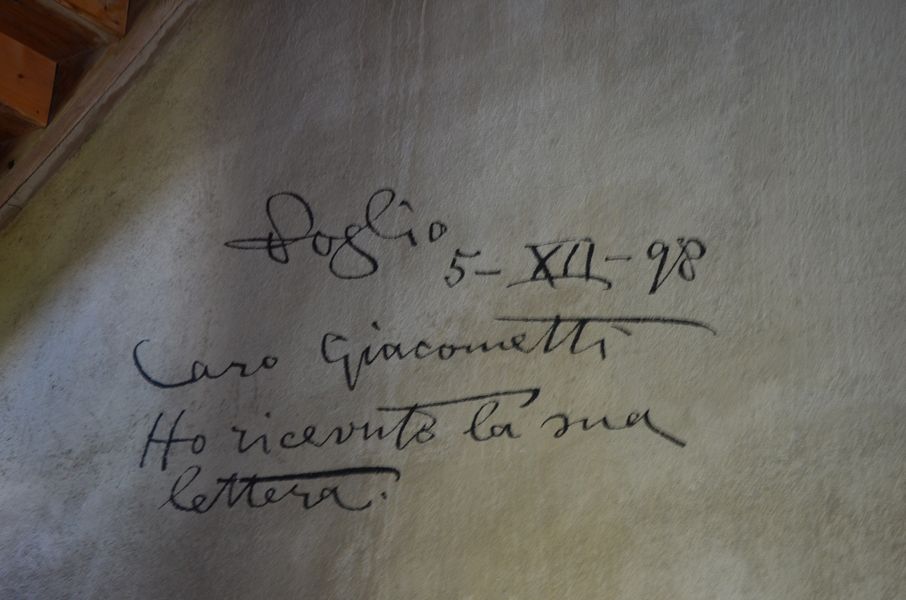 Soglio 5-XII-98
Caro Giacometti
Ho ricevuto la sua
lettera.